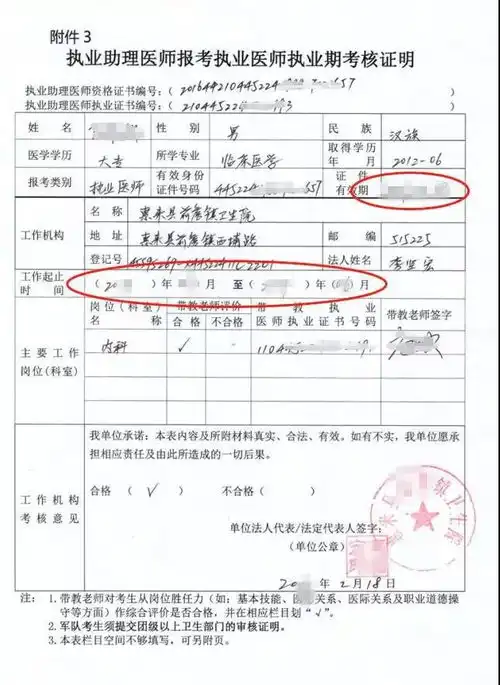 附件 3
执业助理医师报考执业医师执业期考核证明
执业助理医师资格证书编号：（ 201644210445224 657 ）
执业助理医师执业证书编号：（ 21044522 3 ）
姓 名 性 别 男 民 族 汉族
医学学历 大专 所学专业 临床医学 取得学历年 月 2012-06
报考类别 执业医师 有效身份证件号码 445224 657 证 件有效期
工作机构 名 称 惠来县前詹镇卫生院
地 址 惠来县前詹镇西埔路 邮 编 515225
登记号 法人姓名 李坚宏
工作起止时间 （ 20 ）年 月 至（ 2 ）年（06）月
主要工作岗位(科室) 岗位(科室) 带教老师评价 合格 不合格 带教执业医师执业证书号码 带教老师签字
内科 ✓ 1104
工作机构考核意见
我单位承诺：本表内容及所附材料真实、合法、有效。如有不实，我单位愿承
担相应责任及由此所造成的一切后果。
合格 （ ✓ ） 不合格（ ）
单位法人代表/法定代表人签字：
（单位公章）
20 年 2 月 18 日
注： 1.带教老师对考生从岗位胜任力（如：基本技能、医 关系、医际关系及职业道德操
守等方面）作综合评价是否合格，并在相应栏目划“√”。
2.军队考生须提交团级以上卫生部门的审核证明。
3.本表栏目空间不够填写，可另附页。